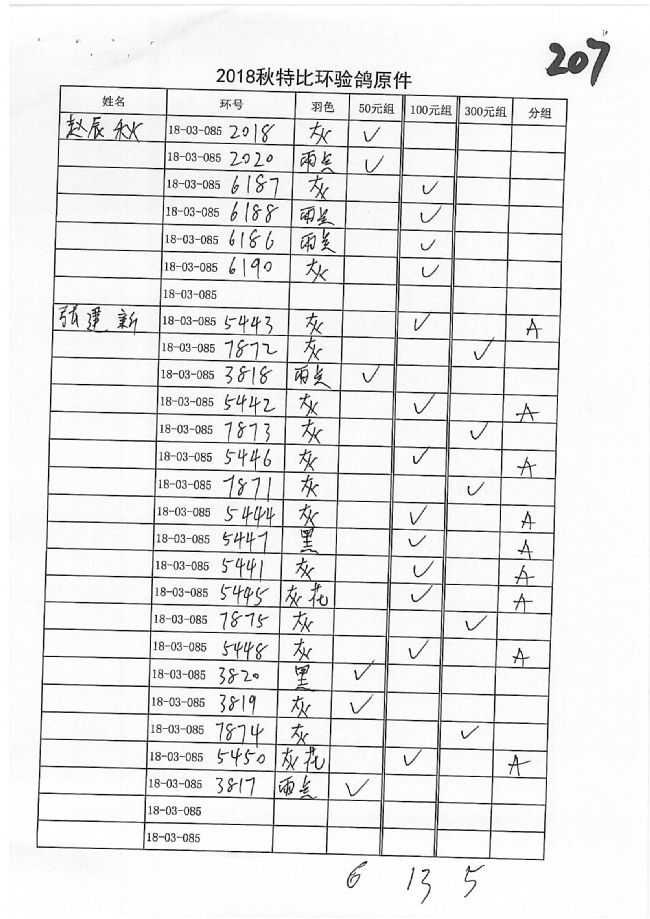 207
2018秋特比环验鸽原件
姓名 环号 羽色 50元组 100元组 300元组 分组
赵辰秋 18-03-085 2018 灰 ✓
18-03-085 2020 雨点 ✓
18-03-085 6187 灰 ✓
18-03-085 6188 雨点 ✓
18-03-085 6186 雨点 ✓
18-03-085 6190 灰 ✓
18-03-085
张建新 18-03-085 5443 灰 ✓ A
18-03-085 7872 灰 ✓
18-03-085 3818 雨点 ✓
18-03-085 5442 灰 ✓ A
18-03-085 7873 灰 ✓
18-03-085 5446 灰 ✓ A
18-03-085 7871 灰 ✓
18-03-085 5444 灰 ✓ A
18-03-085 5447 黑 ✓ A
18-03-085 5441 灰 ✓ A
18-03-085 5445 灰花 ✓ A
18-03-085 7875 灰 ✓
18-03-085 5448 灰 ✓ A
18-03-085 3820 黑 ✓
18-03-085 3819 灰 ✓
18-03-085 7874 灰 ✓
18-03-085 5450 灰花 ✓ A
18-03-085 3817 雨点 ✓
18-03-085
18-03-085
6 13 5